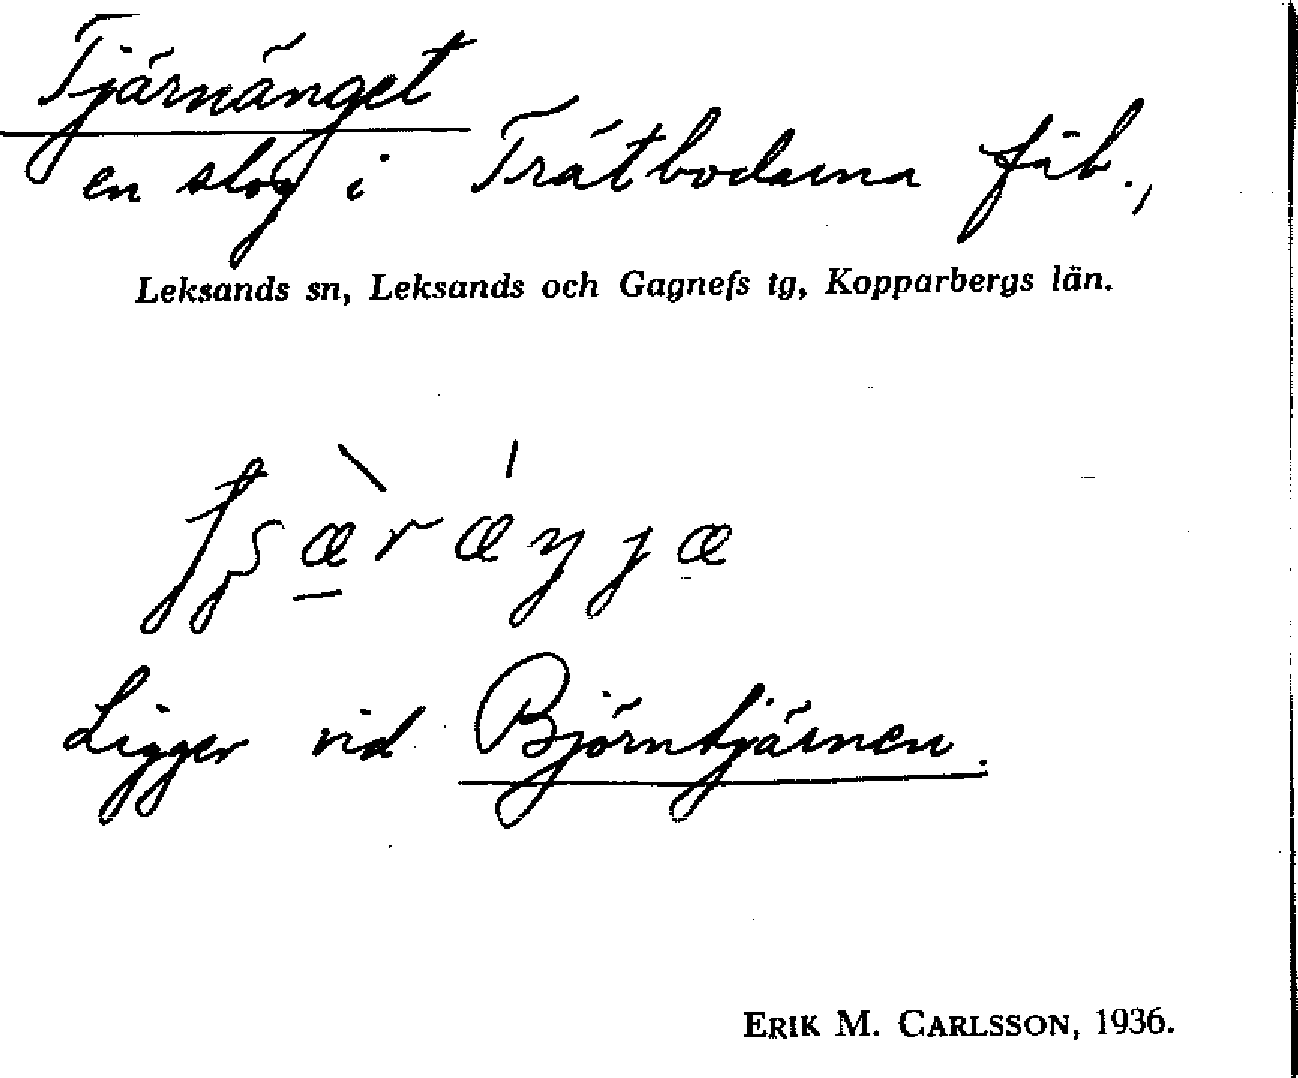 Tjärnänget
en slog i Tråtbodarna fäb.,
Leksands sn, Leksands och Gagnefs tg, Kopparbergs län.
Ligger vid Björntjärnen.
ERIK M. CARLSSON, 1936.